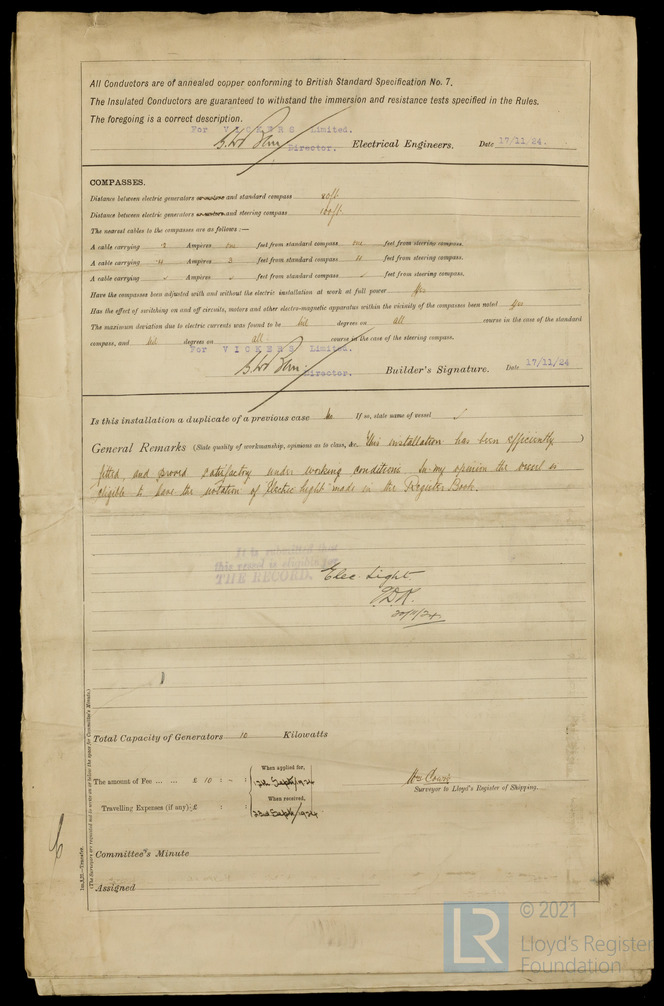 All Conductors are of annealed copper conforming to British Standard Specification No. 7.
The Insulated Conductors are guaranteed to withstand the immersion and resistance tests specified in the Rules.
The foregoing is a correct description.
For VICKERS Limited.
Director. Electrical Engineers. Date 17/11/24.
COMPASSES.
Distance between electric generators and standard compass 80ft.
Distance between electric generators and steering compass 100ft.
The nearest cables to the compasses are as follows:—
A cable carrying 2 Ampères feet from standard compass feet from steering compass.
A cable carrying 4 Ampères 3 feet from standard compass feet from steering compass.
A cable carrying Ampères feet from standard compass feet from steering compass.
Have the compasses been adjusted with and without the electric installation at work at full power Yes
Has the effect of switching on and off circuits, motors and other electro-magnetic apparatus within the vicinity of the compasses been noted Yes
The maximum deviation due to electric currents was found to be nil degrees on all course in the case of the standard
compass, and nil degrees on all course in the case of the steering compass.
For VICKERS Limited.
Director. Builder's Signature. Date 17/11/24
Is this installation a duplicate of a previous case No If so, state name of vessel
General Remarks (State quality of workmanship, opinions as to class, &c. This installation has been efficiently )
fitted, and proved satisfactory under working conditions. In my opinion the vessel is
eligible to have the notation of "Electric Light" made in the Register Book.
It is submitted that
this vessel is eligible for
THE RECORD. Elec. Light.
20/11/24
Total Capacity of Generators 10 Kilowatts
The amount of Fee ... ... £ 10 : - :
When applied for,
Sept 1924
Travelling Expenses (if any) £ : :
When received,
23rd Sept 1924
Surveyor to Lloyd's Register of Shipping.
Committee's Minute
Assigned
(The Surveyors are requested not to write on or below the space for Committee's Minute.)
© 2021
LR
Lloyd's Register
Foundation